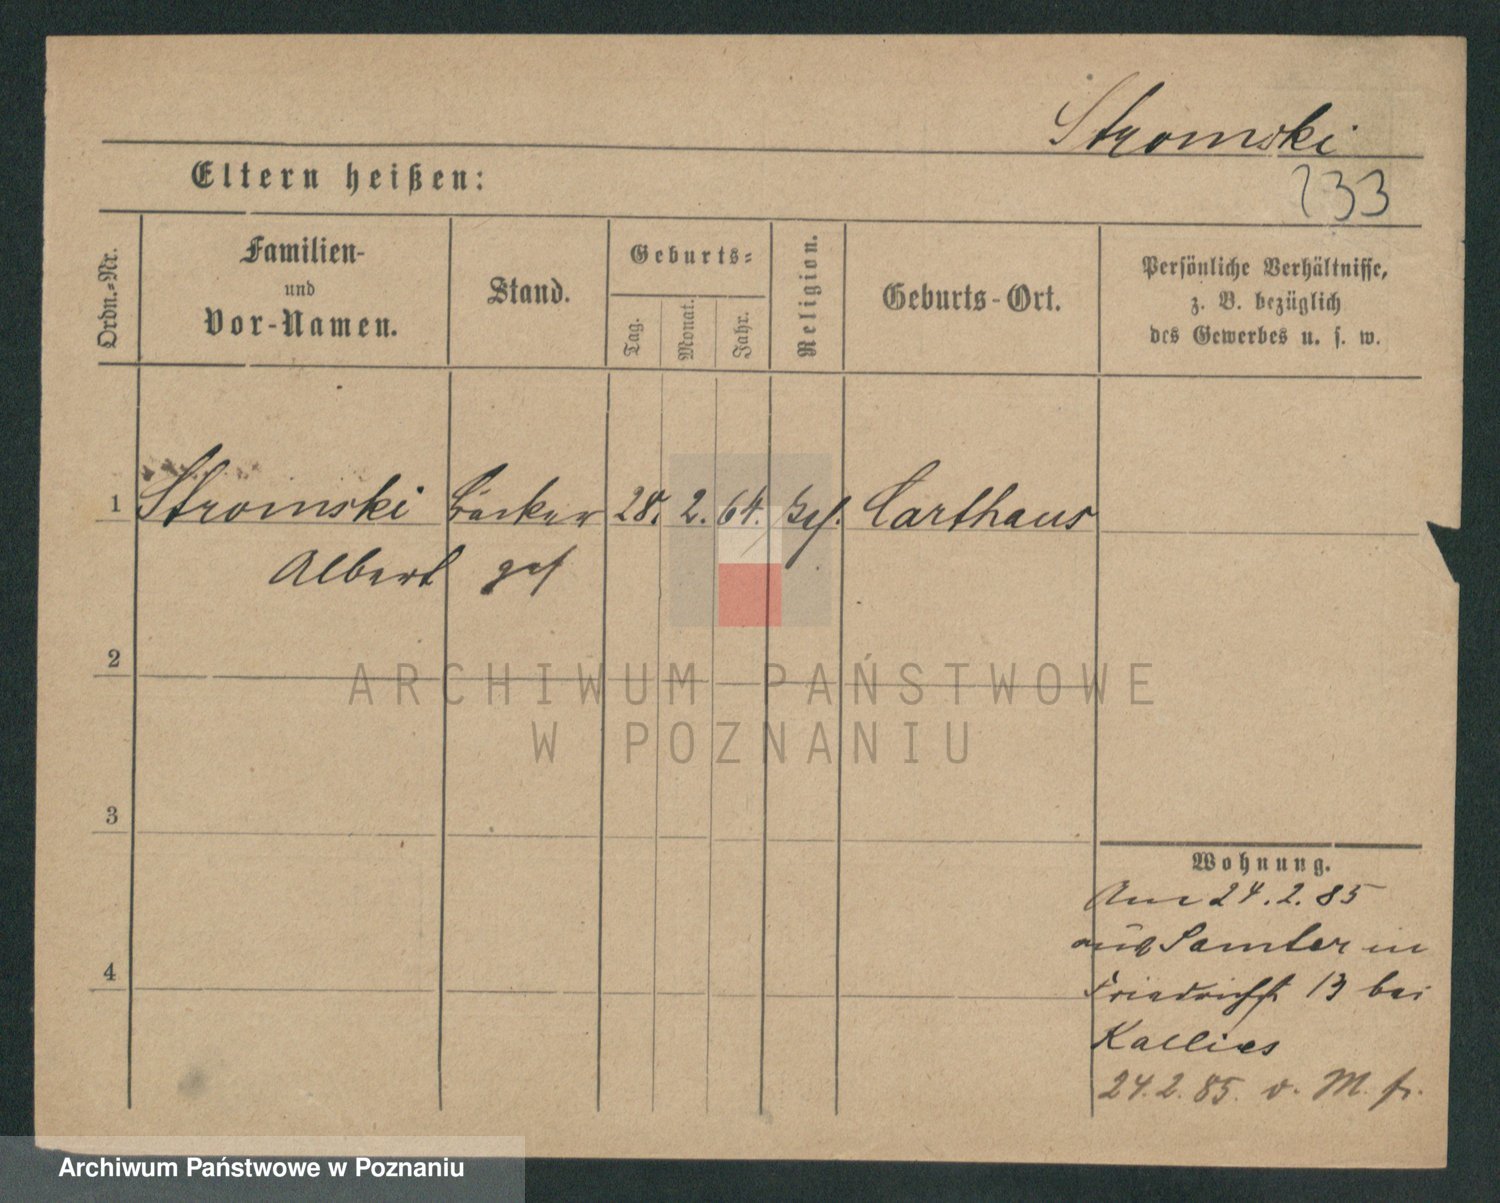 Stromski
233
Eltern heißen:
Ordn.-Nr.
Familien-
und
Vor-Namen.
Stand.
Geburts-
Tag.
Monat.
Jahr.
Religion.
Geburts-Ort.
Persönliche Verhältnisse,
z. B. bezüglich
des Gewerbes u. s. w.
1 Stromski Bäcker 28. 2. 64. Carthaus
Albert
2
ARCHIWUM PAŃSTWOWE
W POZNANIU
3
Wohnung.
24.2.85
aus Samter in
Friedrichst 13 bei
4
Kallies
24.2.85. v. M.
Archiwum Państwowe w Poznaniu